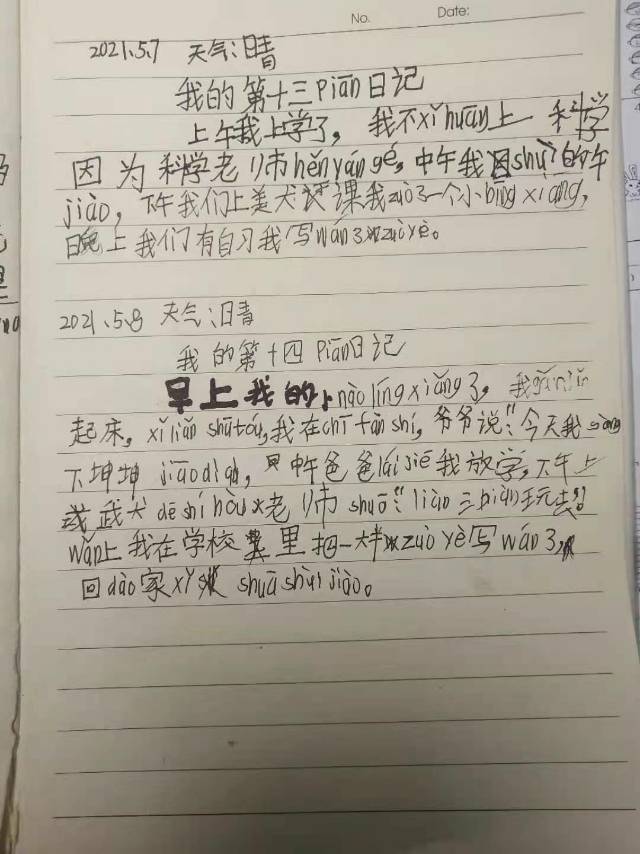 No. Date:
2021.5.7 天气:晴
我的第十三piān日记
上午我上学了，我不xǐhuān上科学
因为科学老师hěnyángé，中午我shuì的午
jiào，下午我们上美术课我zuò了一个小bīngxiāng，
晚上我们有自习我写wán了zuòyè。
2021.5.8 天气:日青
我的第十四piān日记
早上我的nàolíngxiǎng了，我gǎnjǐn
起床，xǐliǎnshūtóu，我在chīfànshí，爷爷说："今天我sòng
下坤坤jiāo，中午爸爸láijiē我放学，下午上
武术dēshíhòu老师shuō："liào三biàn玩去"
wǎn上我在学校里把一大半zuòyè写wán了，
回dào家xǐshuāshuìjiào。